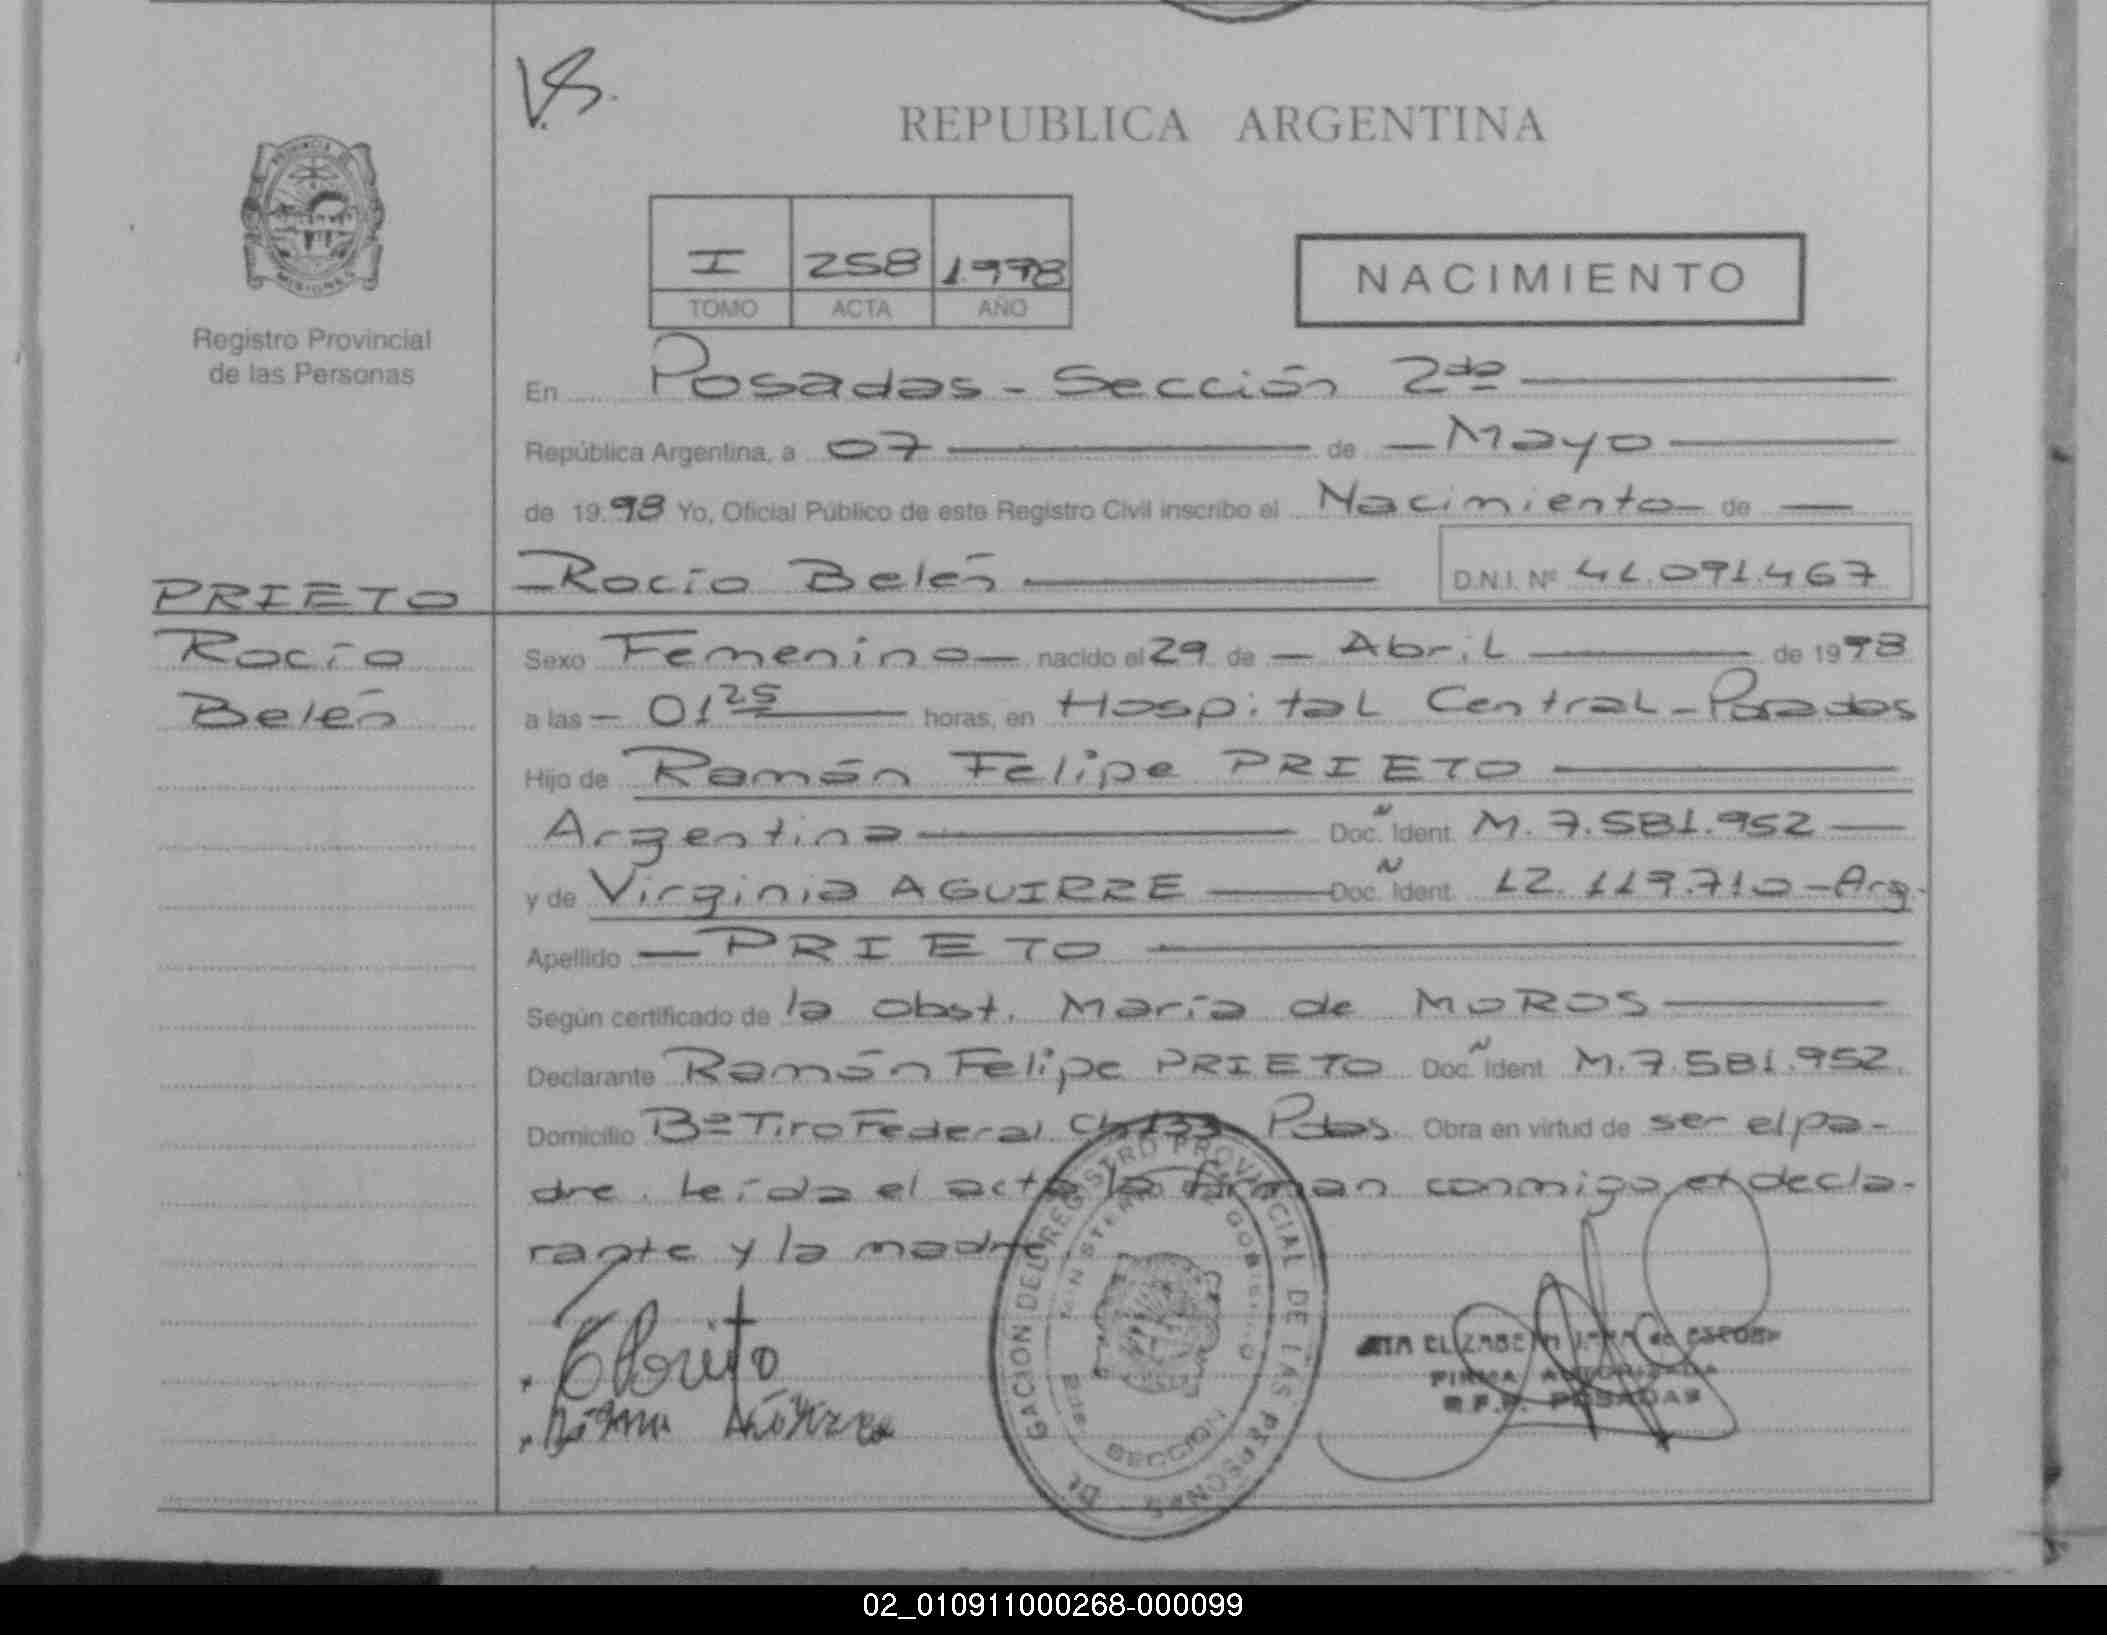 V.S.
REPUBLICA ARGENTINA
I 258 1.998
TOMO ACTA AÑO
NACIMIENTO
Registro Provincial
de las Personas
En Posadas - Sección 2da
República Argentina, a 07 de Mayo
de 19 98 Yo, Oficial Público de este Registro Civil inscribo el Nacimiento de
Rocío Belén D.N.I. Nº 41.091.467
PRIETO
Rocío
Belén
Sexo Femenino nacido el 29 de Abril de 19 98
a las 01 25 horas, en Hospital Central - Posadas
Hijo de Ramón Felipe PRIETO
Argentina Doc. Ident. M. 7.581.952
y de Virginia AGUIRRE Doc. Ident. 12.119.710 - Arg.
Apellido PRIETO
Según certificado de la obst. María de MOROS
Declarante Ramón Felipe PRIETO Doc. Ident. M.7.581.952.
Domicilio Bº Tiro Federal Ch 133 Pdas. Obra en virtud de ser el pa-
dre. Leída el acta la firman conmigo, el decla-
rante y la madre
DELEGACION DEL REGISTRO PROVINCIAL DE LAS PERSONAS
MINISTERIO DE GOBIERNO
SECCION
ELIZABETH de
FIRMA AUTORIZADA
R.P.P. POSADAS
02_010911000268-000099